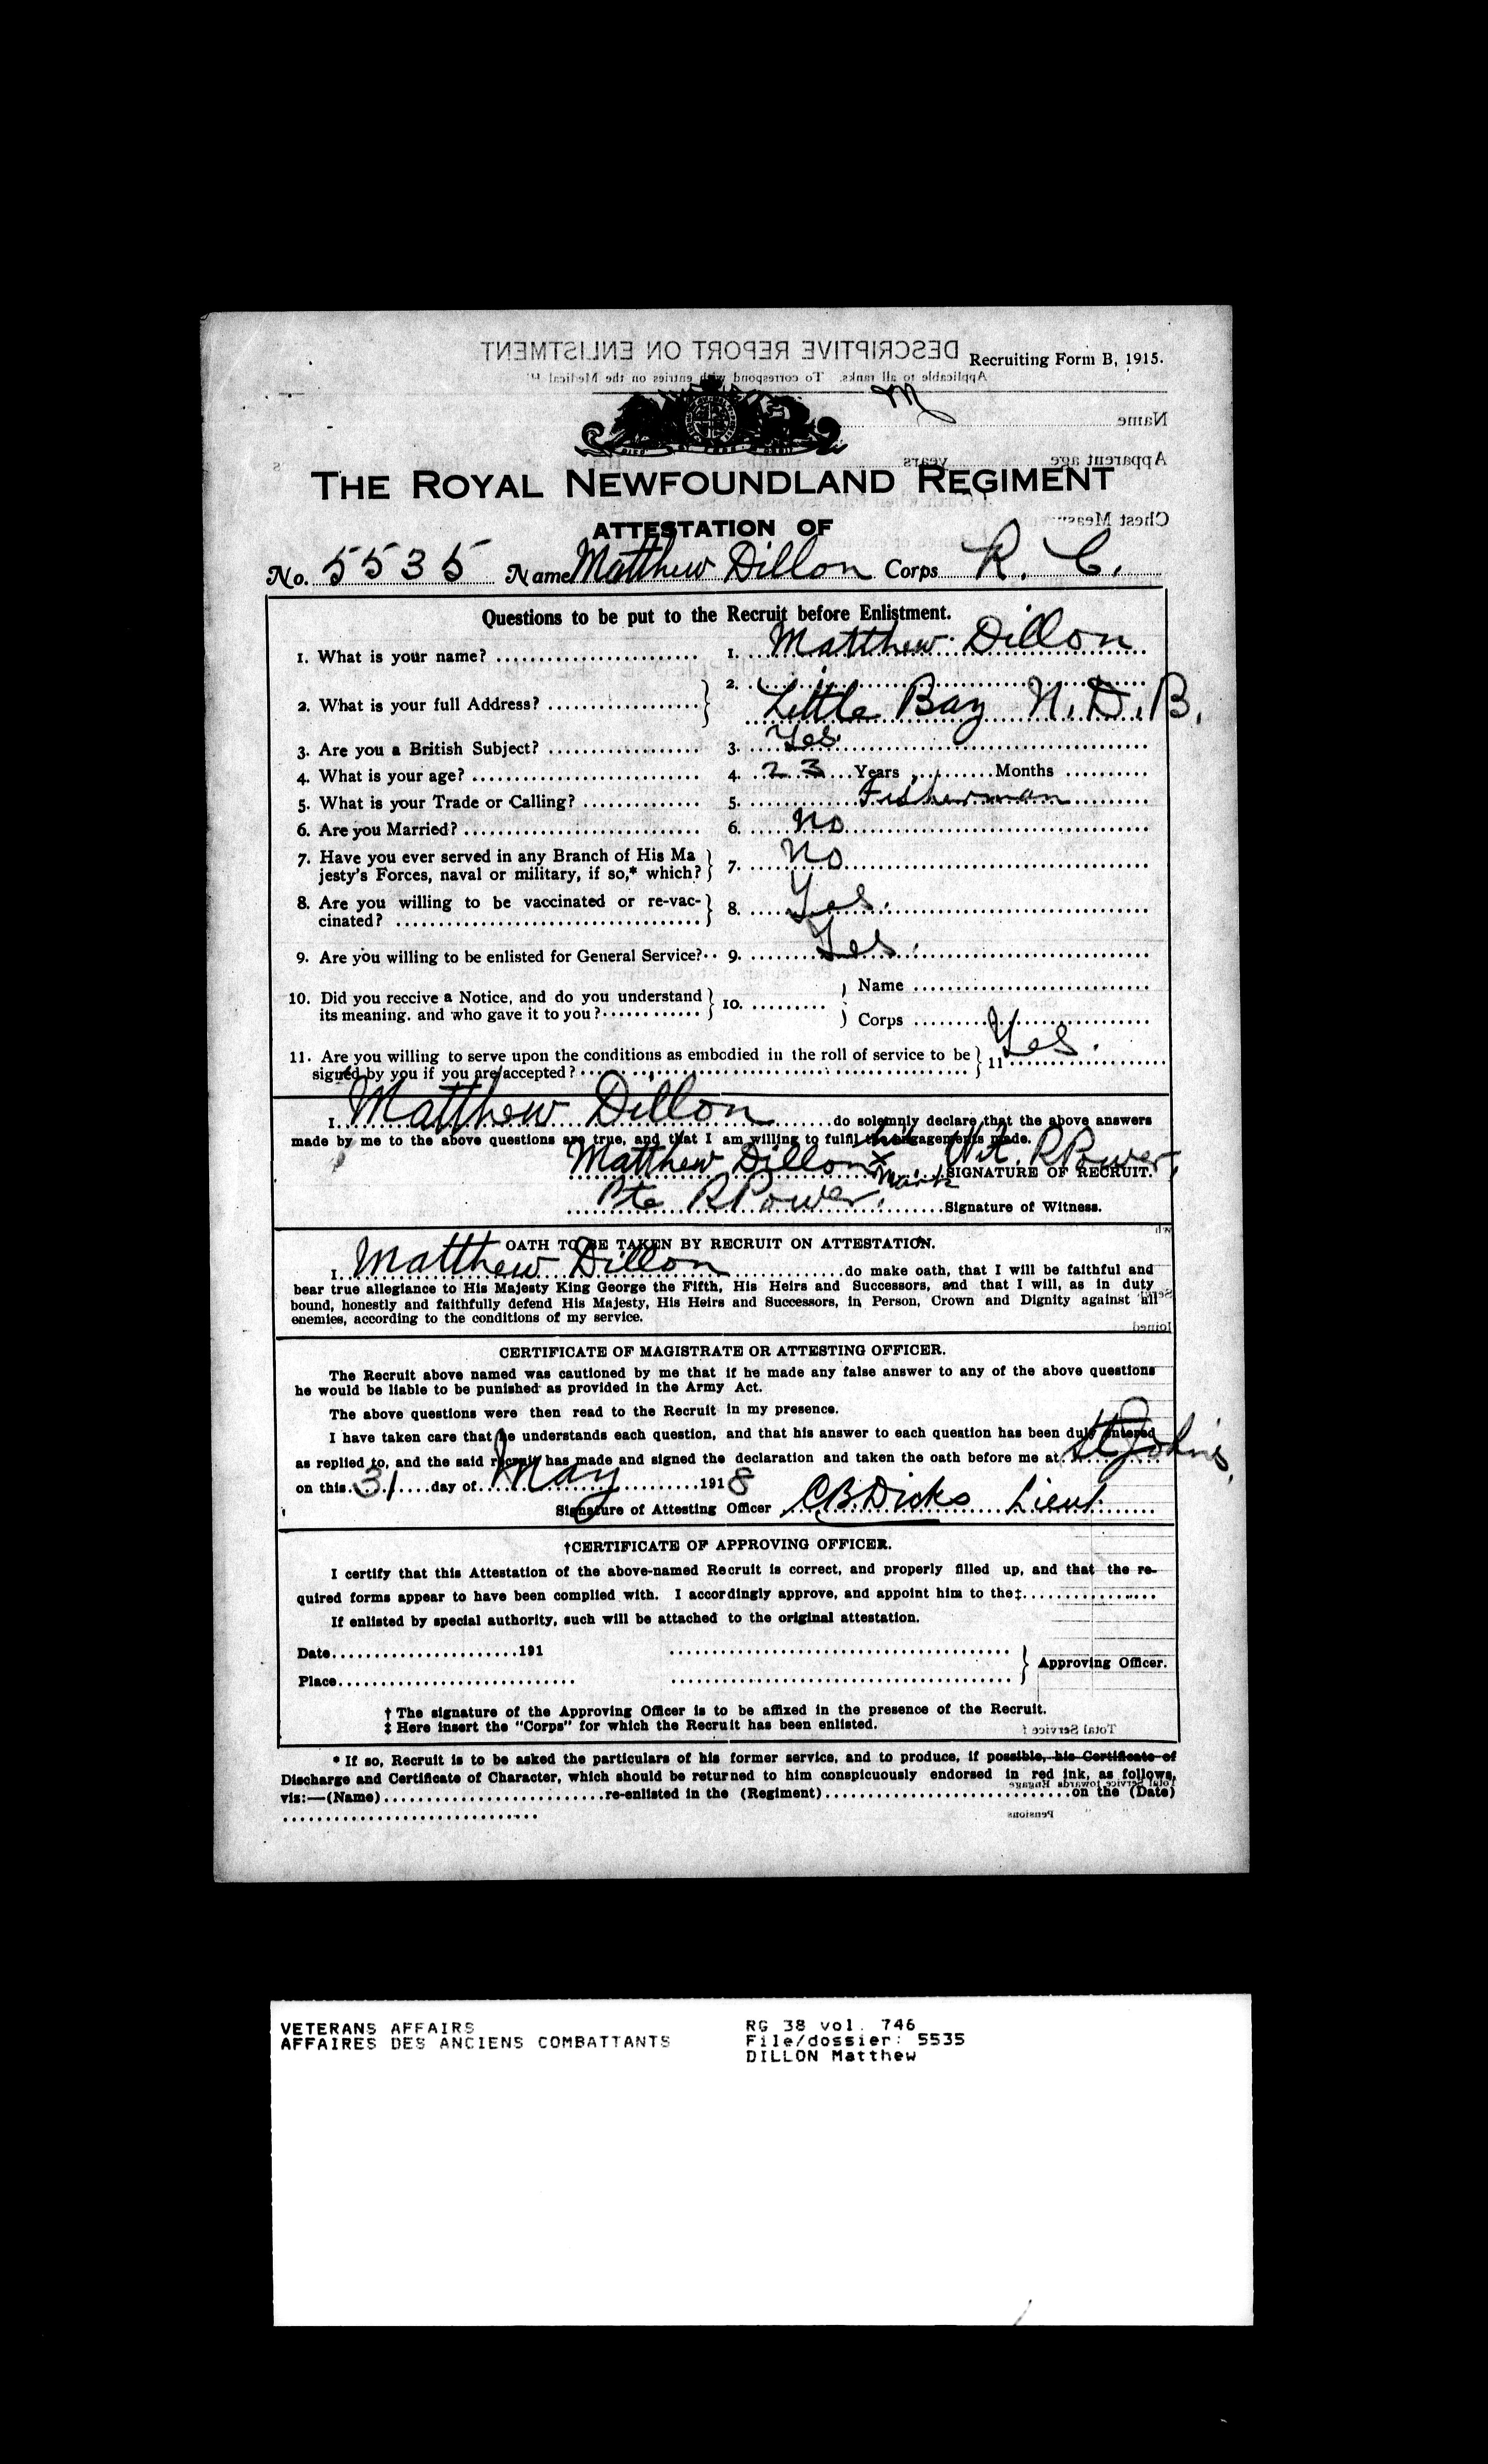 DESCRIPTIVE REPORT ON ENLISTMENT
Recruiting Form B, 1915.
Applicable to all ranks. To correspond with entries on the Medical
M
Name
Apparent age years months
THE ROYAL NEWFOUNDLAND REGIMENT
Chest Measure
ATTESTATION OF
No. 5535 Name Matthew Dillon Corps R. C.
Questions to be put to the Recruit before Enlistment.
1. What is your name? 1. Matthew Dillon
2. What is your full Address? 2. Little Bay N.D.B.
3. Are you a British Subject? 3. Yes
4. What is your age? 4. 23 Years Months
5. What is your Trade or Calling? 5. Fisherman
6. Are you Married? 6. No
7. Have you ever served in any Branch of His Ma
jesty's Forces, naval or military, if so,* which? 7. No
8. Are you willing to be vaccinated or re-vac-
cinated? 8. Yes.
9. Are you willing to be enlisted for General Service? 9. Yes.
10. Did you receive a Notice, and do you understand 10. Name
its meaning. and who gave it to you? Corps
11. Are you willing to serve upon the conditions as embodied in the roll of service to be 11 Yes.
signed by you if you are accepted?
I Matthew Dillon do solemnly declare that the above answers
made by me to the above questions are true, and that I am willing to fulfil the engagements made.
Matthew Dillon his x mark Wit. R Power, SIGNATURE OF RECRUIT.
Pte R Power. Signature of Witness.
OATH TO BE TAKEN BY RECRUIT ON ATTESTATION.
I Matthew Dillon do make oath, that I will be faithful and
bear true allegiance to His Majesty King George the Fifth, His Heirs and Successors, and that I will, as in duty
bound, honestly and faithfully defend His Majesty, His Heirs and Successors, in Person, Crown and Dignity against all
enemies, according to the conditions of my service.
Joined
CERTIFICATE OF MAGISTRATE OR ATTESTING OFFICER.
The Recruit above named was cautioned by me that if he made any false answer to any of the above questions
he would be liable to be punished as provided in the Army Act.
The above questions were then read to the Recruit in my presence.
I have taken care that he understands each question, and that his answer to each question has been duly entered
as replied to, and the said recruit has made and signed the declaration and taken the oath before me at St John's,
on this 31 day of May 1918
Signature of Attesting Officer CB Dicks Lieut.
†CERTIFICATE OF APPROVING OFFICER.
I certify that this Attestation of the above-named Recruit is correct, and properly filled up, and that the re-
quired forms appear to have been complied with. I accordingly approve, and appoint him to the‡
If enlisted by special authority, such will be attached to the original attestation.
Date 191
Approving Officer.
Place
† The signature of the Approving Officer is to be affixed in the presence of the Recruit.
‡ Here insert the "Corps" for which the Recruit has been enlisted.
Total Service
* If so, Recruit is to be asked the particulars of his former service, and to produce, if possible, his Certificate of
Discharge and Certificate of Character, which should be returned to him conspicuously endorsed in red ink, as follows,
Total Service towards Engage
vis:—(Name) re-enlisted in the (Regiment) on the (Date)
Pensions
VETERANS AFFAIRS
AFFAIRES DES ANCIENS COMBATTANTS
RG 38 vol. 746
File/dossier: 5535
DILLON Matthew